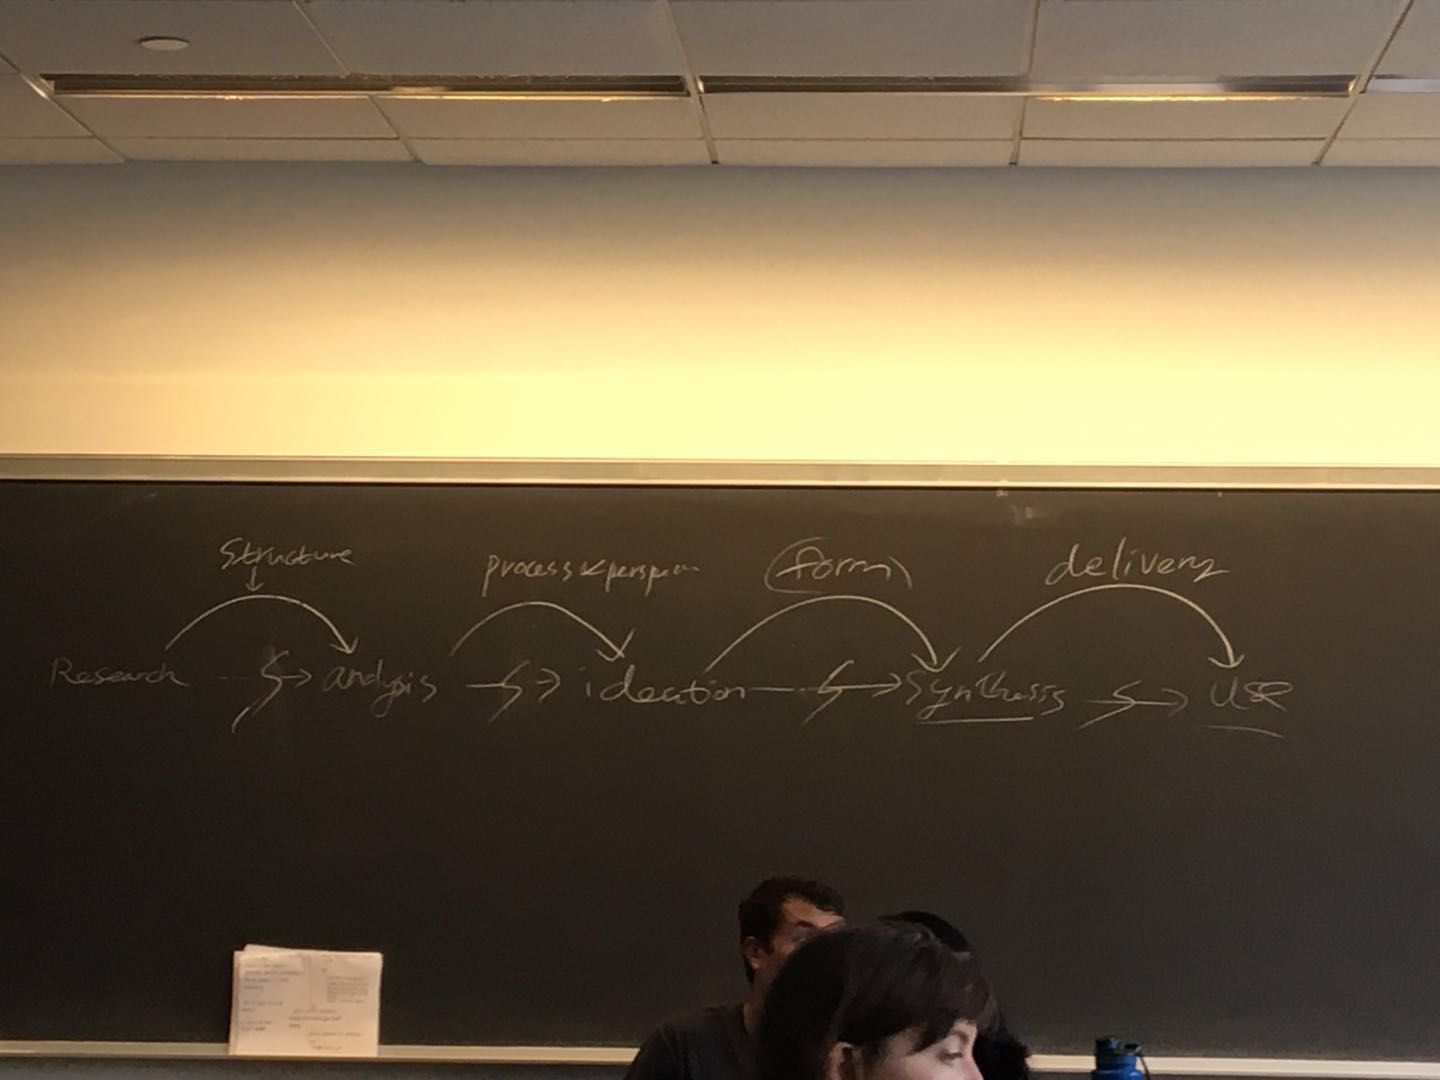 Structure process & perspec (form) delivery
Research analysis ideation Synthesis USE